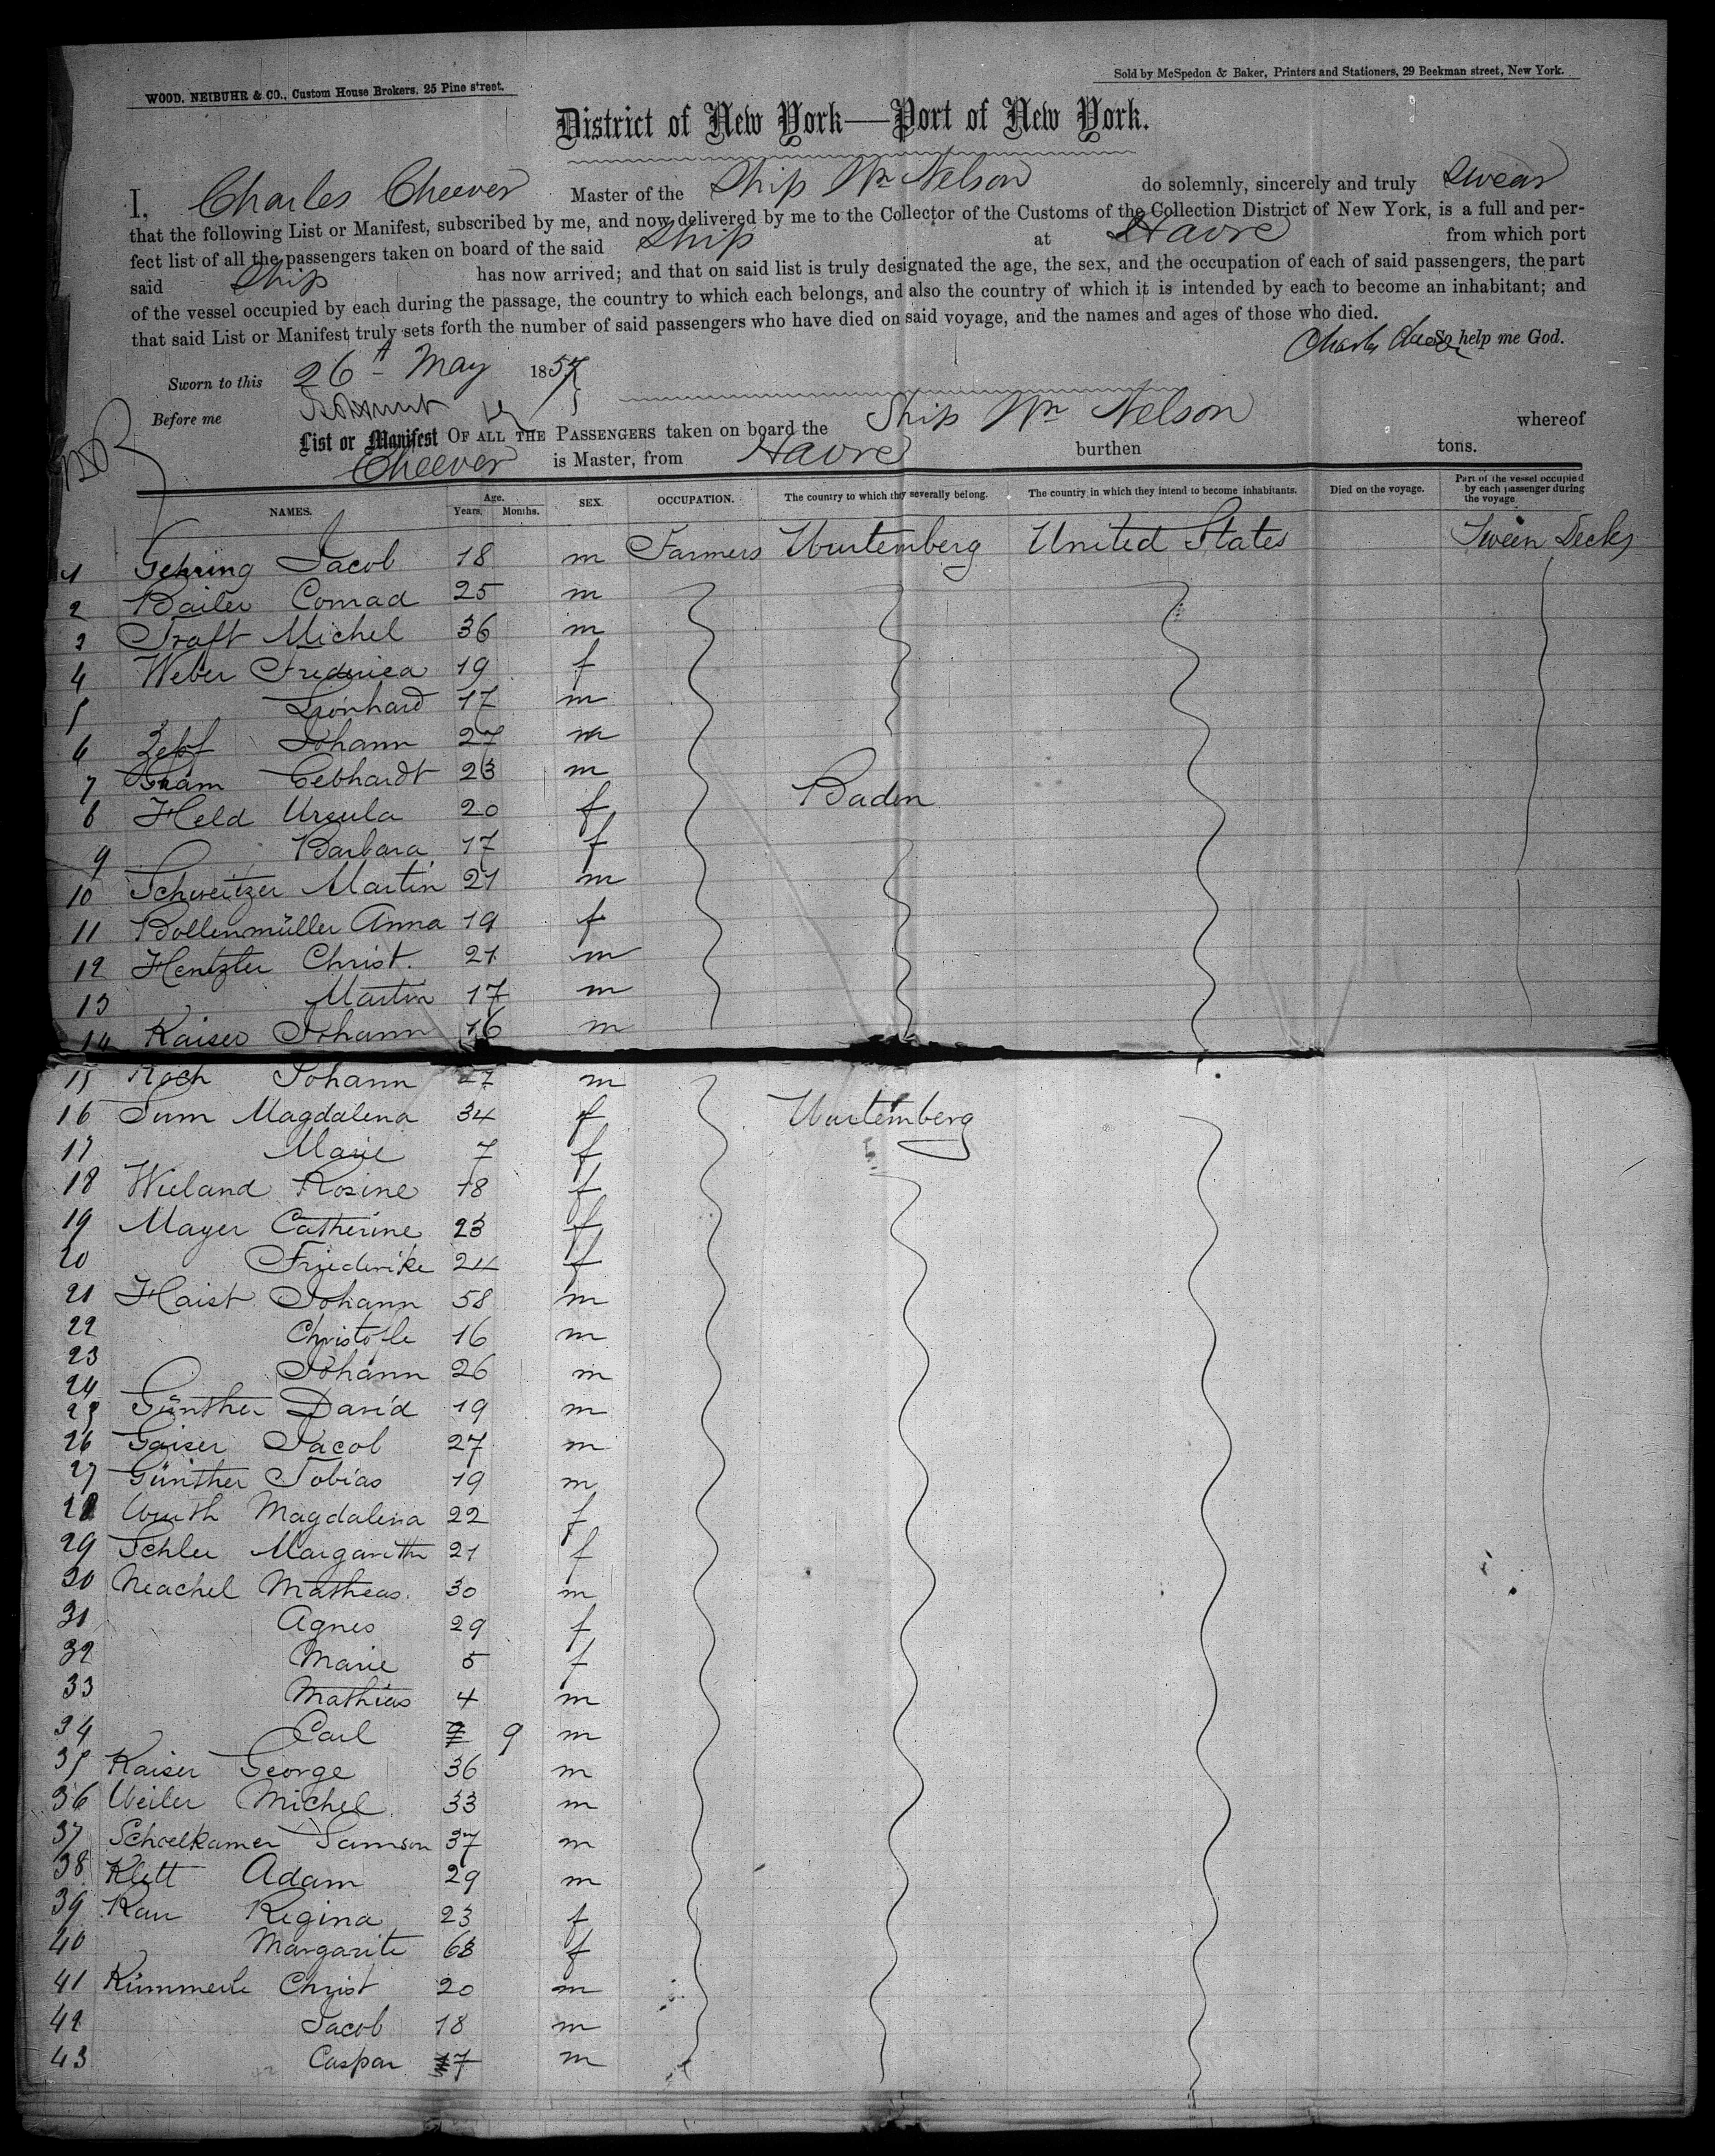 WOOD, NEIBUHR & CO., Custom House Brokers, 25 Pine street.
Sold by McSpedon & Baker, Printers and Stationers, 29 Beekman street, New York.
District of New York—Port of New York.
I, Charles Cheever Master of the Ship Wm Nelson do solemnly, sincerely and truly Swear
that the following List or Manifest, subscribed by me, and now delivered by me to the Collector of the Customs of the Collection District of New York, is a full and per-
fect list of all the passengers taken on board of the said Ship at Havre from which port
said Ship has now arrived; and that on said list is truly designated the age, the sex, and the occupation of each of said passengers, the part
of the vessel occupied by each during the passage, the country to which each belongs, and also the country of which it is intended by each to become an inhabitant; and
that said List or Manifest truly sets forth the number of said passengers who have died on said voyage, and the names and ages of those who died.
Charles Cheever So help me God.
Sworn to this 26th May 1857
Before me
List or Manifest OF ALL THE PASSENGERS taken on board the Ship Wm Nelson whereof
Cheever is Master, from Havre burthen tons.
NAMES. Age. Years. Months. SEX. OCCUPATION. The country to which they severally belong. The country in which they intend to become inhabitants. Died on the voyage. Part of the vessel occupied by each passenger during the voyage
1 Gehring Jacob 18 m Farmers Wurtemberg United States Tween Decks
2 Bailer Conrad 25 m
3 Traft Michel 36 m
4 Weber Frederica 19 f
5 Leonhard 17 m
6 Zepf Johann 27 m
7 Gebhardt 23 m
8 Held Ursula 20 f Baden
9 Barbara 17 f
10 Schweitzer Martin 21 m
11 Bollenmüller Anna 19 f
12 Hentzler Christ. 21 m
13 Martin 17 m
14 Kaiser Johann 16 m
15 Koch Johann 27 m
16 Sum Magdalena 34 f Wurtemberg
17 Marie 7 f
18 Wieland Rosine 18 f
19 Mayer Catherine 23 f
20 Friederike 24 f
21 Haist Johann 58 m
22 Christofle 16 m
23 Johann 26 m
24
25 Günther David 19 m
26 Gaiser Jacob 27 m
27 Günther Tobias 19 m
28 Wurth Magdalena 22 f
29 Schler Margarith 21 f
30 Neachel Matheas. 30 m
31 Agnes 29 f
32 Marie 5 f
33 Mathias 4 m
34 Carl 9 m
35 Kaiser George 36 m
36 Weiler Michel 33 m
37 Schoelkamer Samson 37 m
38 Klett Adam 29 m
39 Rau Regina 23 f
40 Margarite 68 f
41 Kümmerle Christ 20 m
42 Jacob 18 m
43 Caspar 17 m